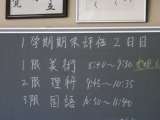 1学期期末評価2日目
1限 美術 8:40~9:30
2限 理科 9:45~10:35
3限 国語 10:50~11:40